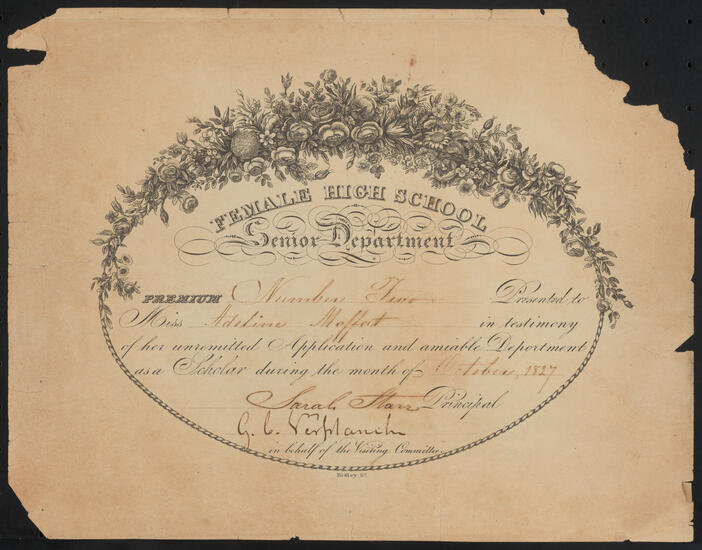 FEMALE HIGH SCHOOL
Senior Department
PREMIUM Number Two Presented to
Miss Adeline Moffat in testimony
of her unremitted Application and amiable Deportment
as a Scholar during the month of October, 1827
Sarah Starr Principal
G. C. Verplanck
in behalf of the Visiting Committee.